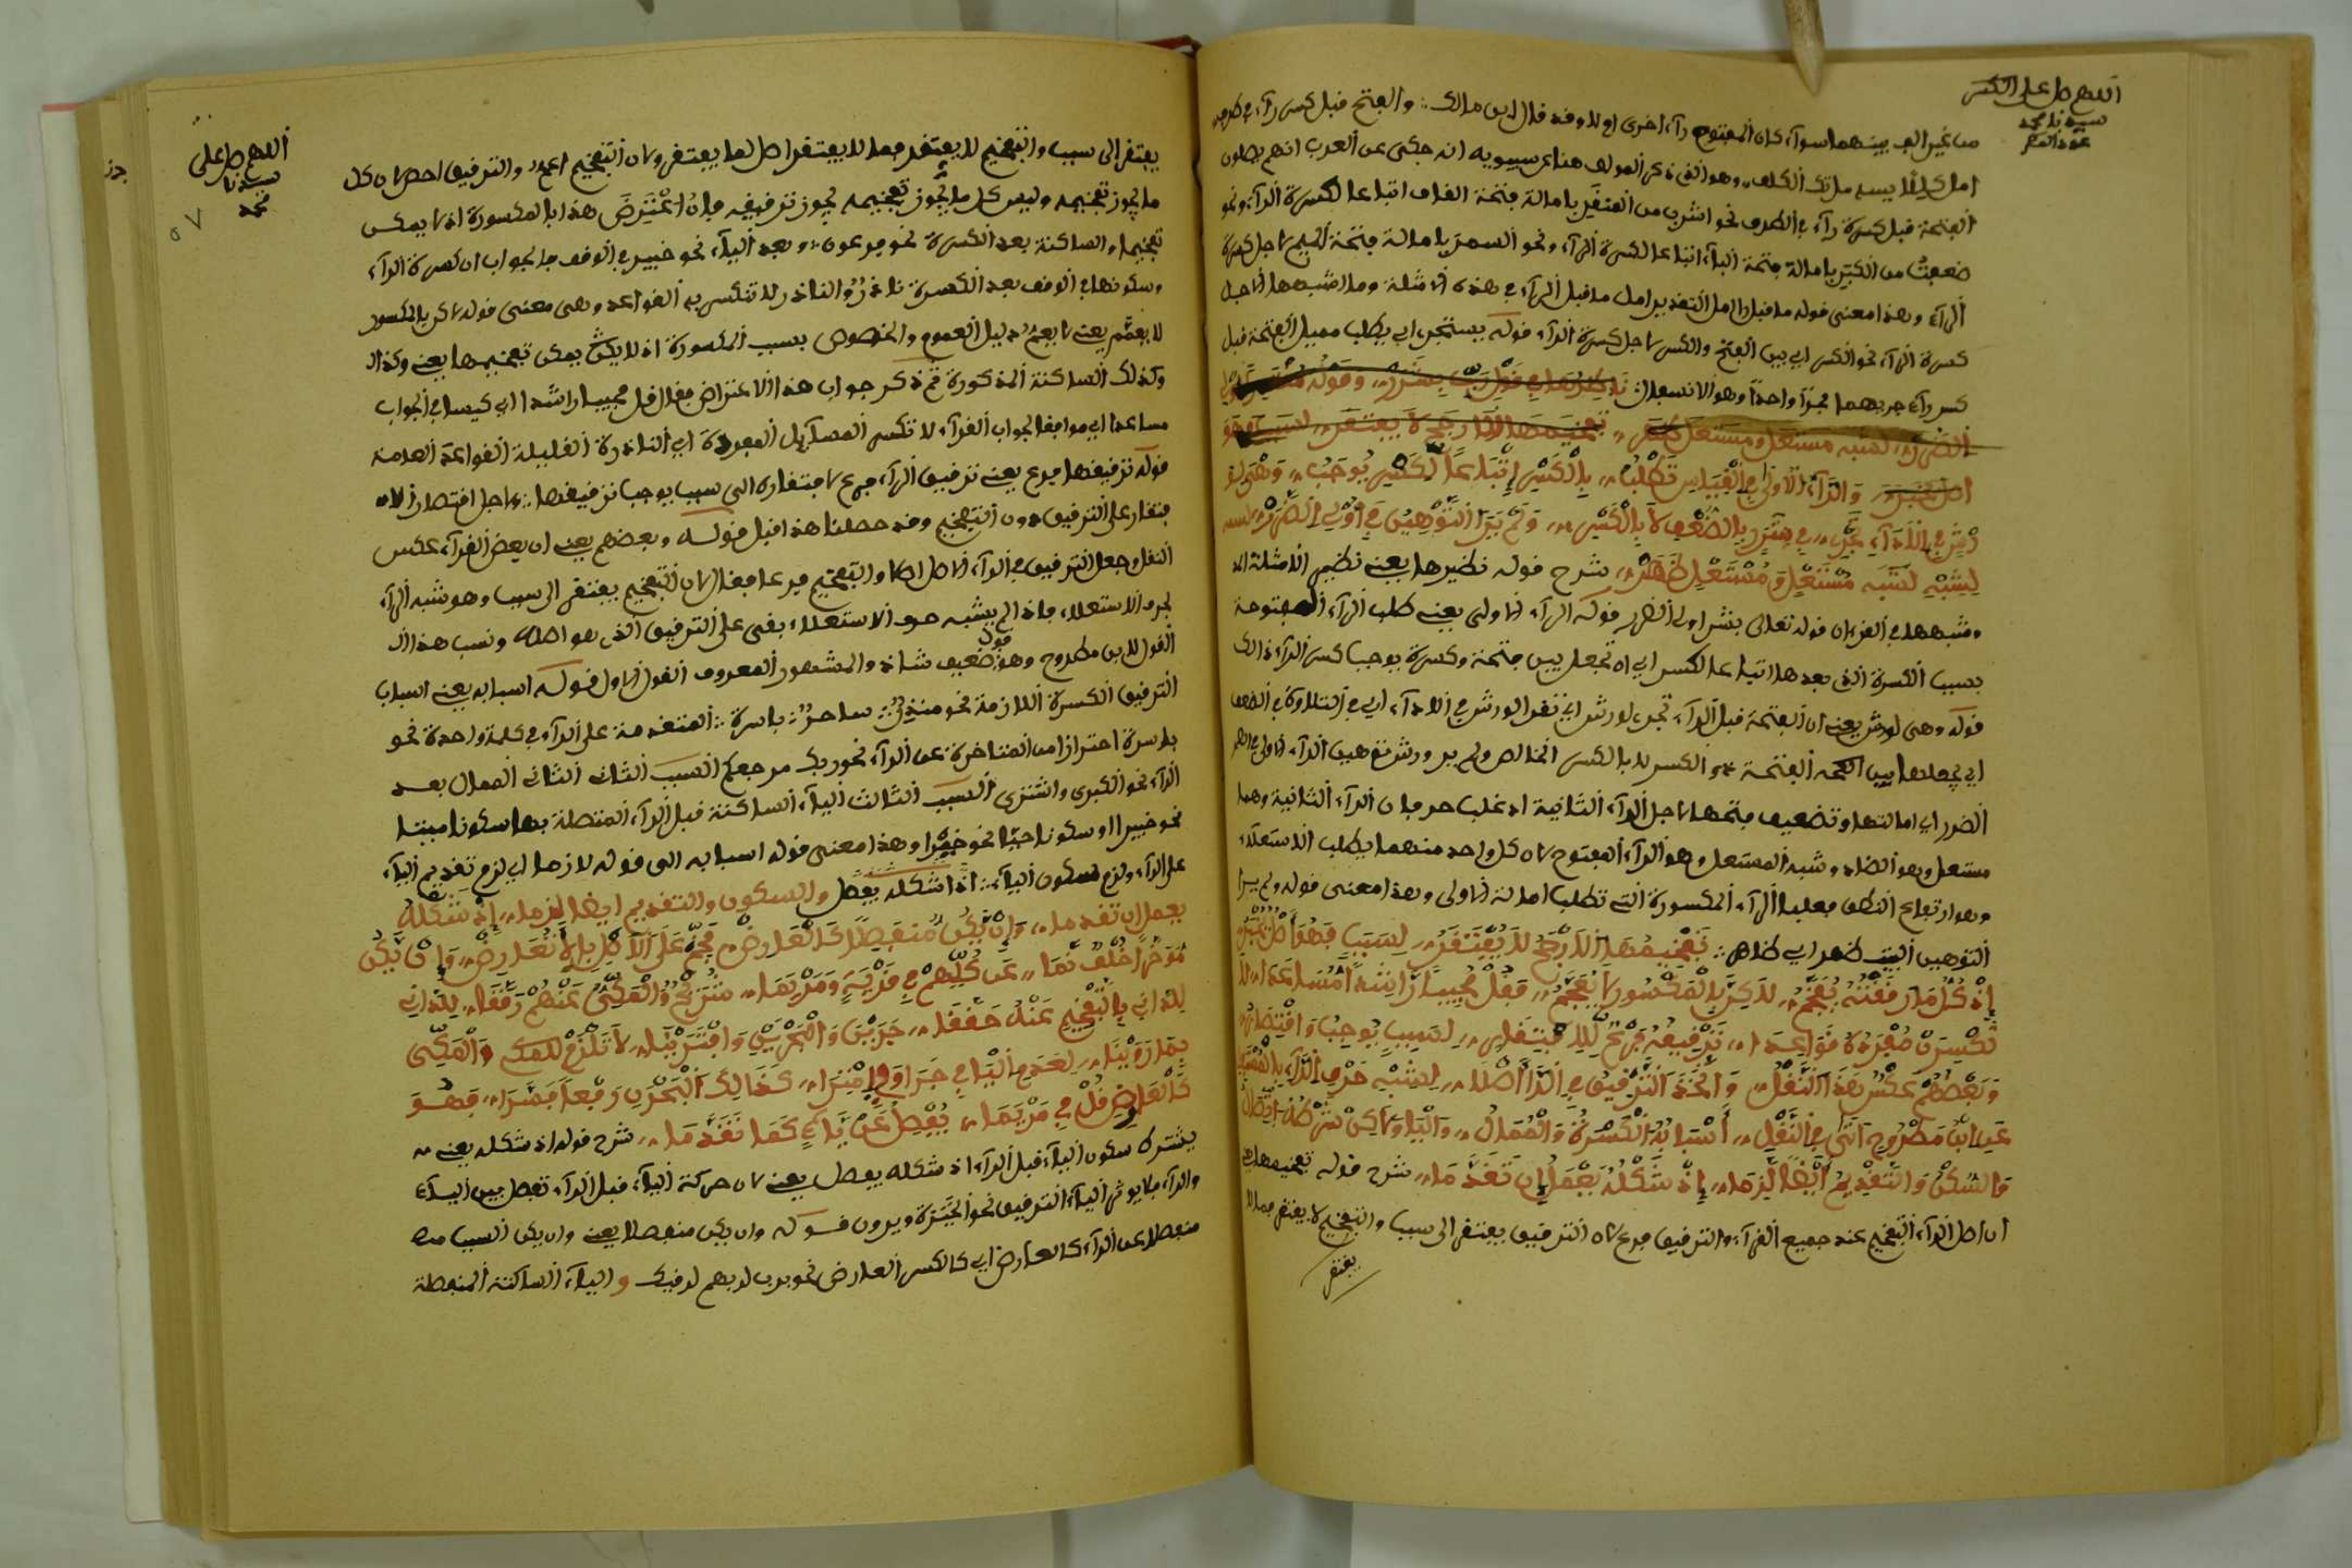 اللهم صل على
سيدنا محمد
من غير الف بينهما سوآء كان المفتوح رآء اخرى او لا وقد قال ابن مالك ∴ والفتح قبل كسر رآء في طرف
امل كللايسر مل تكف الكلف ،، وهو الذي ذكر المولف هنا عن سيبويه انه حكى عن العرب انهم يميلون
الفتحة قبل كسرة رآء في الطرف نحو اشرب من الفقر بامالة فتحة القاف اتباعا لكسرة الرآء ونحو
ضعفت من الكبر بامالة فتحة البآء اتباعا لكسرة الرآء ونحو السمر بامالة فتحة الميم لاجل كسرة
الرآء وهذا معنى قوله ما قبل را امل التقدير امل ما قبل الرآء في هذه الامثلة وما اشبهها لاجل
كسرة الرآء نحو الكسر اي بين الفتح والكسر لاجل كسرة الرآء قوله يستجر اي يطلب مميل الفتحة قبل
كسر رآء جرهما مجرا واحدا وهو الانسفال
والرآء الاولى في القياس تطلب ،، بالكسر اتباعا لكسر يوجب ،، وهي لو
رش في الادآء تجر ،، في شرر بالضعف لا بالكسر ،، ولم ير التوهين في اولى الضرر
لشبه مستعل ومستعل ظهر ،، شرح قوله نظيرها يعني نظير الامثلة
وشبهها في القرءان قوله تعالى بشرر اولى الضرر قوله الرآء الاولى يعني طلب الرآء المفتوحة
بسبب الكسرة التي بعدها اتباعا لكسر اي ان تجعل بين فتحة وكسرة يوجب كسر الرآء ذالك
قوله وهي لورش يعني ان الفتحة قبل الرآء تجر لورش اي تقرا لورش في الادآء اي في التلاوة بالضعف
اي يجعلها بين الفتحة والكسر لا بالكسر الخالص ولم ير ورش توهين الرآء الاولى في اولى
الضرر اي امالتها وتضعيف فتحها لاجل الرآء الثانية اذ غلب حرفان الرآء الثانية وهما
مستعل وهو الضاد وشبه المستعل وهو الرآء المفتوح لان كل واحد منهما يطلب الاستعلاء
وهو ارتفاع النطق فغلبا الرآء المكسورة التي تطلب امالة الاولى وهذا معنى قوله ولم ير
التوهين البيت ظهر اي ظاهر ∴ تفخيمها الارجح لا يفتقر ،، لسبب فهو اصل
اذ كل ما رققته يفخم ،، لاكن بالمكسور لا يفخم ،، فقل مجيبا راشدا مساعدا ،، لا
تكسرن مفردة قواعدا ،، ترقيقه فرع للافتقار ،، لسبب يوجب واقتصار
وبعضهم عكس هذا النقل ،، واتخذ الترقيق في الرا اصلا ،، لشبه حرف الرآء بالمستعلي
عن ابن مطروح اتى في النقل ،، اسبابه الكسرة والممال ،، واليا ولاكن شرطه اتصال
والسكن والتقديم ايضا لزما ،، اذ شكله يفصل ان تقدما ،، شرح قوله تفخيمها
ان اصل الرآء التفخيم عند جميع القرآء والترقيق فرع لان الترقيق يفتقر الى سبب والتفخيم لا يفتقر فما لا
يفتقر
اللهم صل على
سيدنا
محمد
٥٧
يفتقر الى سبب والتفخيم لا يفتقر فما لا يفتقر اصل لما يفتقر ولان التفخيم اعم والترقيق اخص لان كل
ما يجوز تفخيمه وليس كل ما يجوز تفخيمه يجوز ترقيقه فان اعترض هذا بالمكسورة اذ لا يمكن
تفخيمها والساكنة بعد الكسرة نحو فرعون وبعد اليآء نحو خبير في الوقف فالجواب ان كسرة الرآء
وسكونها في الوقف بعد الكسرة نادر والنادر لا تنكسر به القواعد وهي معنى قوله لاكن بالمكسور
لا يفخم يعني لا يعم دليل العموم والخصوص بسبب المكسورة اذ لا يمكن تفخيمها يعني وكذالك
وكذلك الساكنة المذكورة ثم ذكر جواب هذا الاعتراض فقال فقل مجيبا راشدا اي كيسا في الجواب
مساعدا اي موافقا لجواب القرآء لا تكسر المسآيل المفردة اي النادرة القليلة القواعد العامة
قوله ترقيقها فرع يعني ترقيق الرآء فرع لافتقاره الى سبب يوجب ترقيقها ولاجل اقتصار الا
فتقار على الترقيق دون التفخيم وقد حصلنا هذا قبل قوله وبعضهم يعني ان بعض القرآء عكس
النقل وجعل الترقيق في الرآء الاصل والتفخيم فرعا فقال ان التفخيم يفتقر الى سبب وهو شبه الرآء
بحرف الاستعلاء فاذا لم يشبه حرف الاستعلاء بقي على الترقيق الذي هو اصله ونسب هذا ال
القول لابن مطروح وهو قول ضعيف شاذ والمشهور المعروف القول الاول قوله اسبابه يعني اسباب
الترقيق الكسرة اللازمة نحو منذر ∴ ساحر ∴ باسرة ∴ المتقدمة على الرآء في كلمة واحدة نحو
باسرة احترازا من المتاخرة عن الرآء نحو ربك مرجعكم السبب الثاني الممال بعد
الرآء نحو الكبرى واشترى السبب الثالث اليآء الساكنة قبل الرآء المتصلة بها سكونا ميتا
نحو خبيرا او سكونا حيا نحو خيرا وهذا معنى قوله اسبابه الى قوله لازما اي لزم تقديم اليآء
على الرآء ولزم سكون اليآء ∴ اذا شكله يفصل والسكون والتقديم ايضا لزما ،، اذ شكله
يفصل ان تقدما ،، وان يكن منفصلا كالعارض ،، فخم على الاصل بلا تعارض ،، وان يكن
موخرا خلف نما ،، عن كلهم في قرية ومريما ،، ترقيق والمكي عنهم رققا ،، للداني
للداني بالتفخيم عنه حققا ،، جرين والبحرين واقترينا ،، لا تلزم المكي
بما روينا ،، لعدم اليا في جرا وفي امترا ،، كذالك البحرين رفعا فسرا ،، فهو
كالعارض قل في مريما ،، يفصل عن يآء كما تقدما ،، شرح قوله اذ شكله يعني
يشترط سكون اليآء قبل الرآء اذ شكله يفصل يعني لان حركة اليآء قبل الرآء تفصل بين اليآء
والرآء فلا يوثر اليآء الترقيق نحو الخيرة ويرون قوله وان يكن منفصلا يعني وان يكن السبب
منفصلا عن الرآء كالعارض اي كالكسر العارض نحو برب لربهم لرقيك واليآء الساكنة المنفصلة